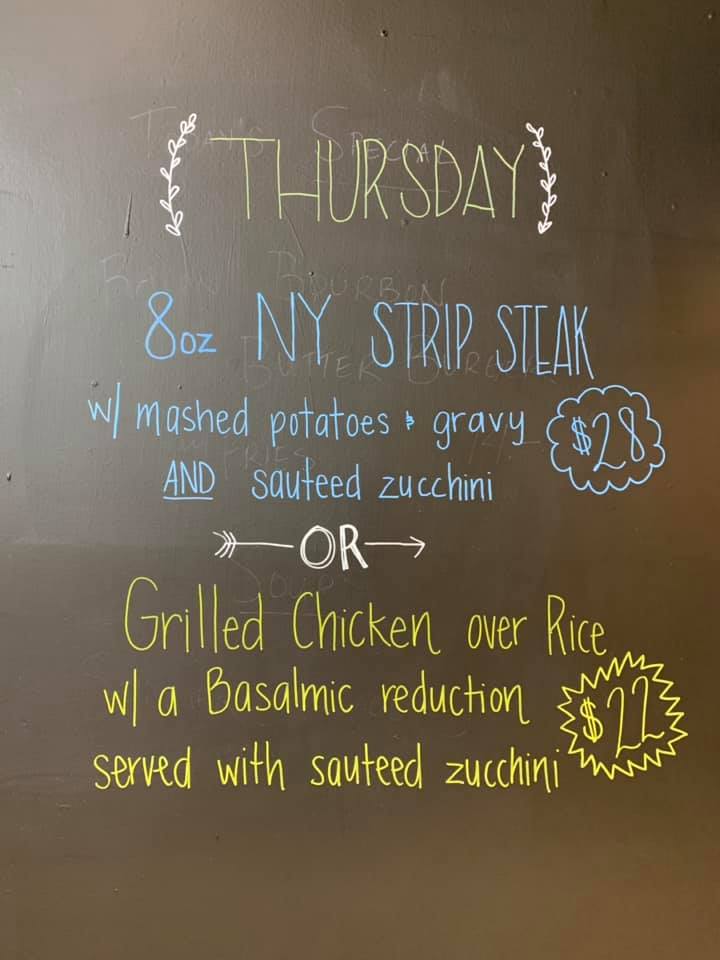 THURSDAY
8oz NY STRIP STEAK
w/ mashed potatoes & gravy
$28
AND sauteed zucchini
OR
Grilled Chicken over Rice
w/ a Basalmic reduction
$22
served with sauteed zucchini